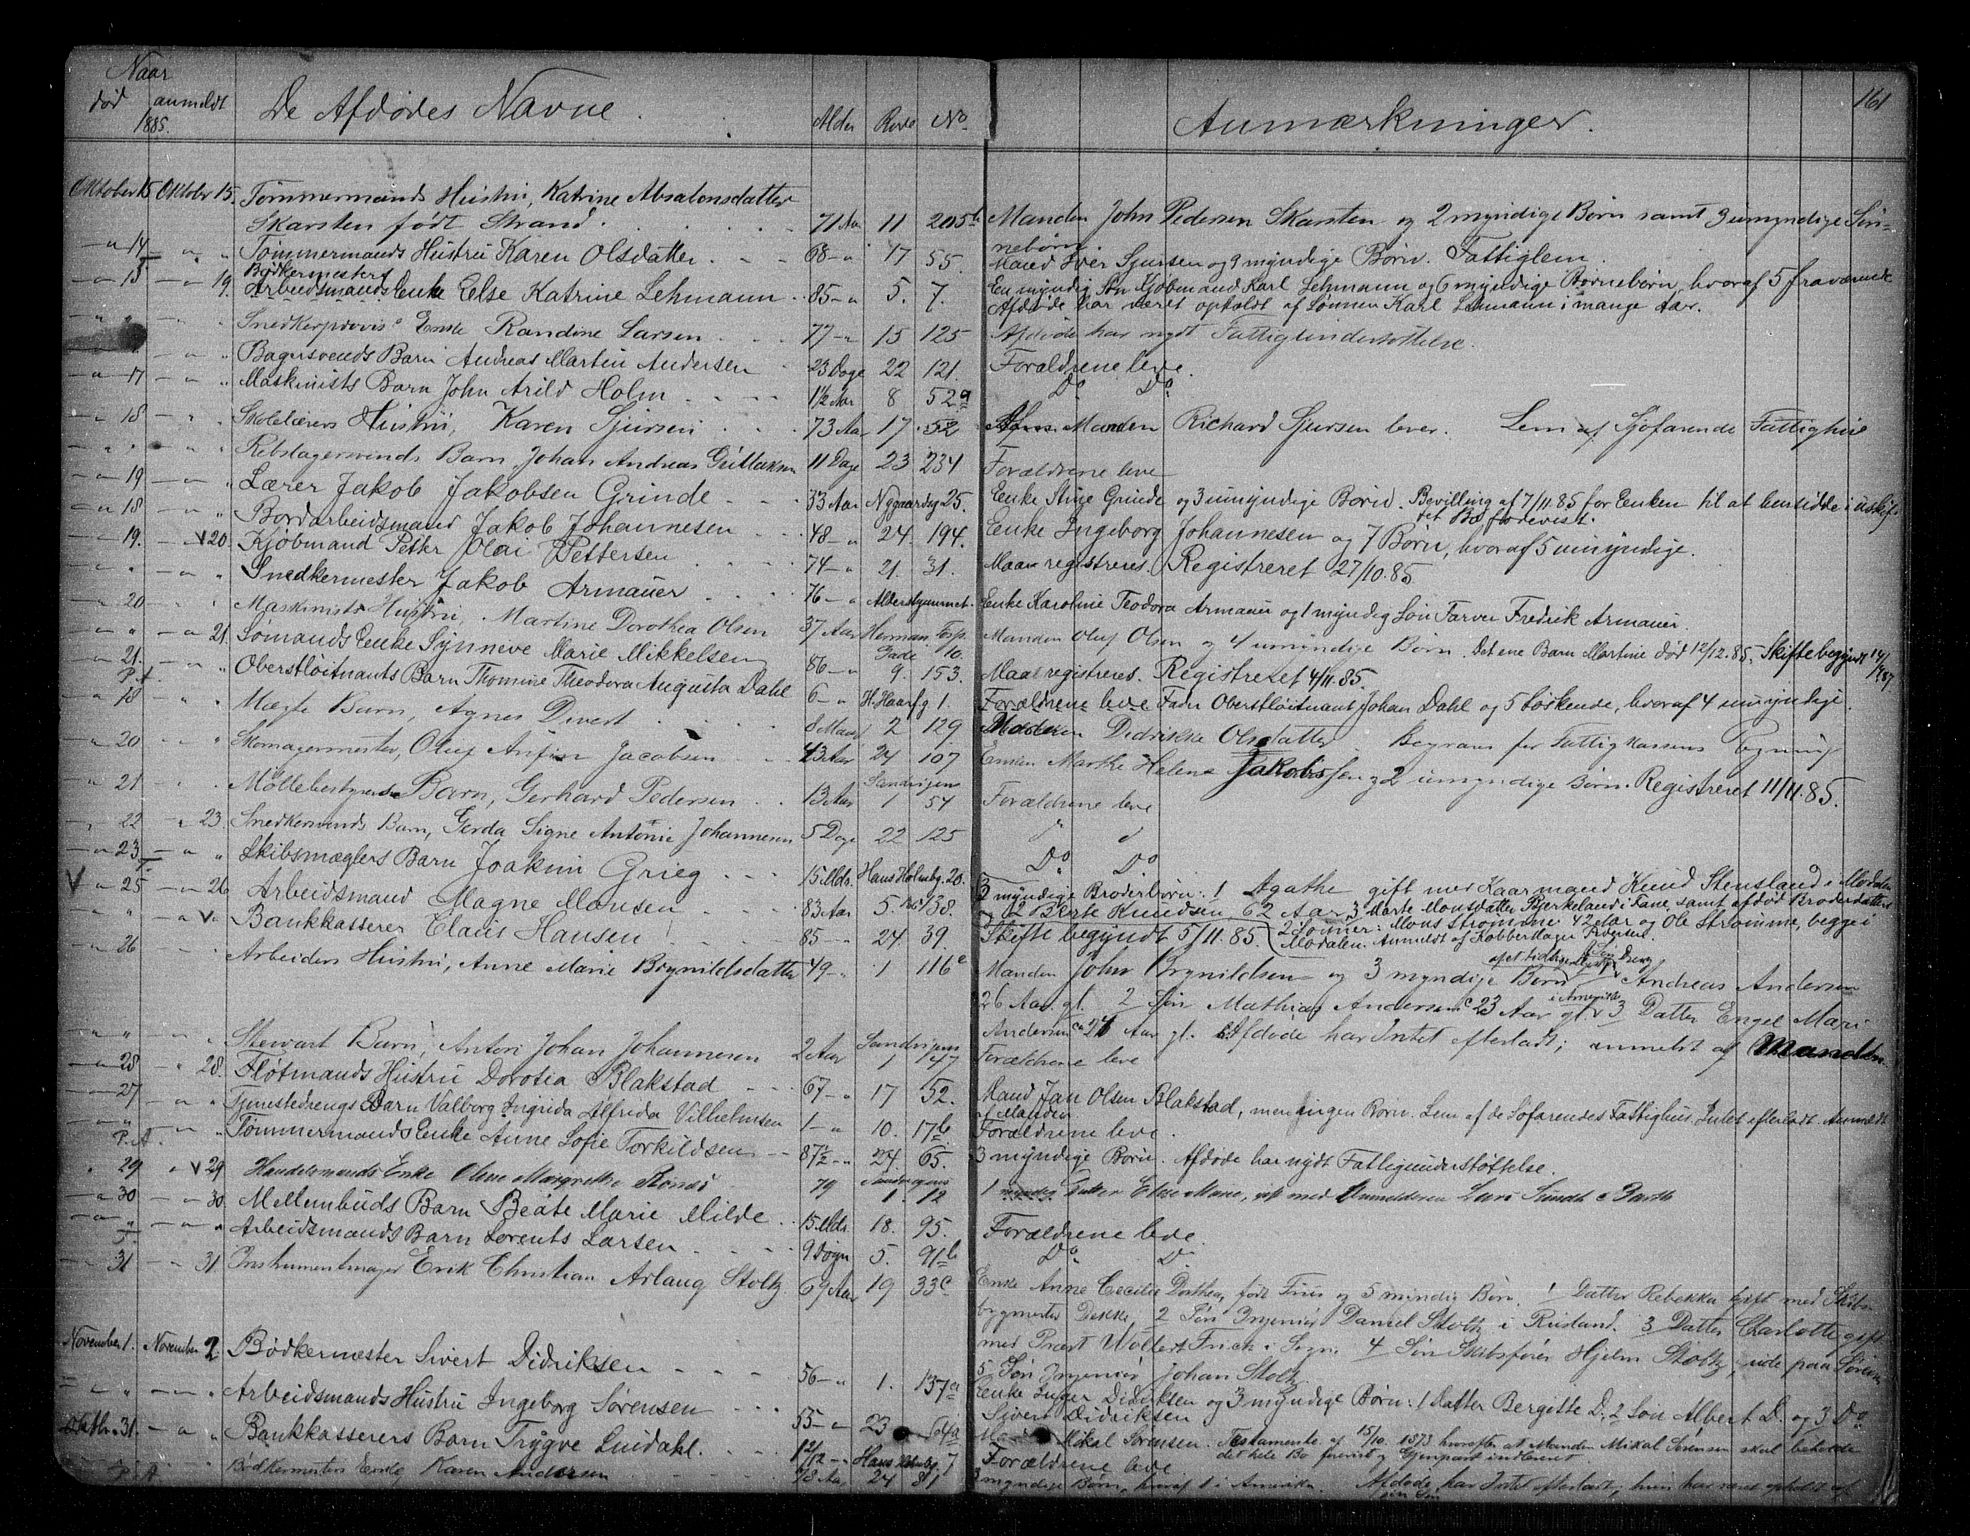 161
Naar
død anmeldt De Afdødes Navne. Alder Rode No. Anmærkninger.
1885.
Oktober 15 Oktober 15. Tømmermands Hustru, Katrine Absalonsdatter
Skarsten født Strand. 71 Aar 11 205b Manden John Pedersen Skarsten og 2 myndige Børn samt umyndige Søn-
nebørn.
14 Tømmermands Hustru Karen Olsdatter 68 17 55. Mand Iver Sjursen og myndige Børn. Fattiglem.
Bødkermesters
15 19. Arbeidsmands Enke Else Katrine Lehmann 85 5. 7. En myndig Søn Kjøbmand Karl Lehmann og 6 myndige Børnebørn, hvoraf 5 fraværende
Afdøde har været opholdt af Sønnen Karl Lehmann i mange Aar.
Enke Randine Larsen 77 15 125 Afdøde har nydt Fattigunderstøttelse.
Bagersvends Barn Andreas Martin Andersen 23 Dage 22 121. Forældrene leve.
17 Maskinists Barn John Arild Holm 1½ Aar 8 52a Do Do
18 Skolelærers Hustru, Karen Sjursen 73 Aar 17 52 Manden Richard Sjursen lever. Lem af Sjøfarende Fattighus
Rebslagersvends Barn, Johan Andreas 11 Dage 23 234 Forældrene leve
19 Lærer Jakob Jakobsen Grinde 33 Aar Nygaardsg 25. Enke Grinde og 3 umyndige Børn. Bevilling af 7/11.85 for Enken til at hensidde i uskif-
tet Bo
18 Bordarbeidsmand Jakob Johannesen 48 24. 194. Enke Ingeborg Johannesen og 7 Børn, hvoraf 5 umyndige.
19. V 20. Kjøbmand Petter Olai Pettersen 74 21. 31. Maa registreres. Registreret 27/10.85
Snedkermester Jakob Armauer 76 Alderstymmet. Enke Karoline Teodora Armauer og 1 myndig Søn Farver Fredrik Armauer.
20 Maskinists Hustru, Martine Dorothea Olsen 37 Aar Herman Fosp. Gade 10. Manden Oluf Olsen og 4 umyndige Børn. Det ene Barn Martine død 12/12.85. Skifte begyndt
21. Sømands Enke Synneve Marie Mikkelsen 86 9. 153. Maa registreres. Registreret 4/11.85.
21. Oberstløitnants Barn Thomine Theodora Augusta Dahl 6 H. Haarfg 1. Forældrene leve Fader Oberstløitnant Johan Dahl og 5 Søskende, hvoraf 4 umyndige.
P.A.
18 Barn, Agnes 8 Maan 2 129 Moderen Didrikke Olsdatter. Begraves for Fattigkassens Regning
20 Skomagermester, Jacobsen 43 Aar 24 107 Enken Marthe Helene Jakobsen og 2 umyndige Børn. Registreret 11/11.85.
21 Møllebestyrers Barn, Gerhard Pedersen 13 Aar Sandvigens 1 54 Forældrene leve
22 23. Snedkersvends Barn, Gerda Signe Antonie Johannesen 5 Dage 22 125
23 Skibsmæglers Barn Joakim Grieg 15 Mdr. Hans Holmbg. 20. Do Do
V 25 26 Arbeidsmand Magne Monsen 83 Aar 5. 138. 3 myndige Broderbørn: 1 Agathe gift med Kaarmand Knud Stensland i Modalen
2 Berte Knudsen 62 Aar, 3 Marte Monsdatter samt afdød Broderdatters
V Bankkasserer Claus Hansen 85 24 39. Skifte begyndt 5/11.85. 2 Sønner: Mons Strømme 42 Aar og Ole Strømme, begge i
Modalen. Anmeldt af Kobberslager
26 Arbeiders Hustru, Anne Marie Brynildsdatter 49 1 116c Manden John Brynildsen og 3 myndige Børn Andreas Andersen
26 Aar gl. 2 Søn Mathias Andersen 23 Aar gl. i Amerika 3 Datter Engel Mari
Andersen 21 Aar gl. Afdøde har Intet efterladt; anmeldt af Manden.
Stewart Barn, Anton Johan Johannesen 2 Aar Sandvigens 1 147 Forældrene leve
28 28. Fløtmands Hustru Dorotea Blakstad 67 17 52. Mand Jan Olsen Blakstad, men ingen Børn. Lem af de Søfarendes Fattighus. Intet efterladt. Anmeldt
af Manden
27 Tjenestedrengs Barn Valborg Ingrida Alfrida Vilhelmsen 1 10. 17b Forældrene leve.
P.A. Tømmermands Enke Anne Sofie Torkildsen 87½ 24. 65. 3 myndige Børn. Afdøde har nydt Fattigunderstøttelse.
29 V 29 Handelsmands Enke Oline Margrethe 79 Sandvigens 1. 12 1 myndig Datter Else Marie, gift med Anmelderen
30 30. Mellembuds Barn Beate Marie Milde 15 Mdr. 18. 95. Forældrene leve.
Arbeidsmands Barn Lorents Larsen 9 Døgn 5. 91b Do D
31 31. Instrumentmager Erik Christian Arlaug Stoltz 69 Aar 19 33c Enke Anne Cecilie Dorthea, født Friis og 5 myndige Børn. 1 Datter Rebekka gift med Skibs-
bygmester Dekke, 2 Søn Ingeniør Daniel Stoltz i Rusland. 3 Datter Charlotte gift
med Præst Wollert Frich i Sogn. 4 Søn Skibsfører Hjelm Stoltz, ude paa Søen
5 Søn Ingeniør Johan Stoltz
November 1. November 2 Bødkermester Sivert Didriksen 56 1. 137a Enke Inger Didriksen og 3 myndige Børn: 1 Datter Bergitte D., 2 Søn Albert D. og 3 Do
Sivert Didriksen
Arbeidsmands Hustru Ingeborg Sørensen 55 23 Mikal Sørensen. Testamente af 15/10 1873 hvorefter at Manden Mikal Sørensen skal beholde
det hele Bo Gjenpart indleveret.
Oktbr. 31. Bankkasserers Barn Trygve Lindahl. 1 2/12 Hans Holmbg. 7 Forældrene leve
P.A. Bødkermesters Enke Karen Andersen 78 Aar 24 81 3 myndige Børn, hvoraf 1 i Amerika. Afdøde har Intet efterladt; hun har været opholdt af